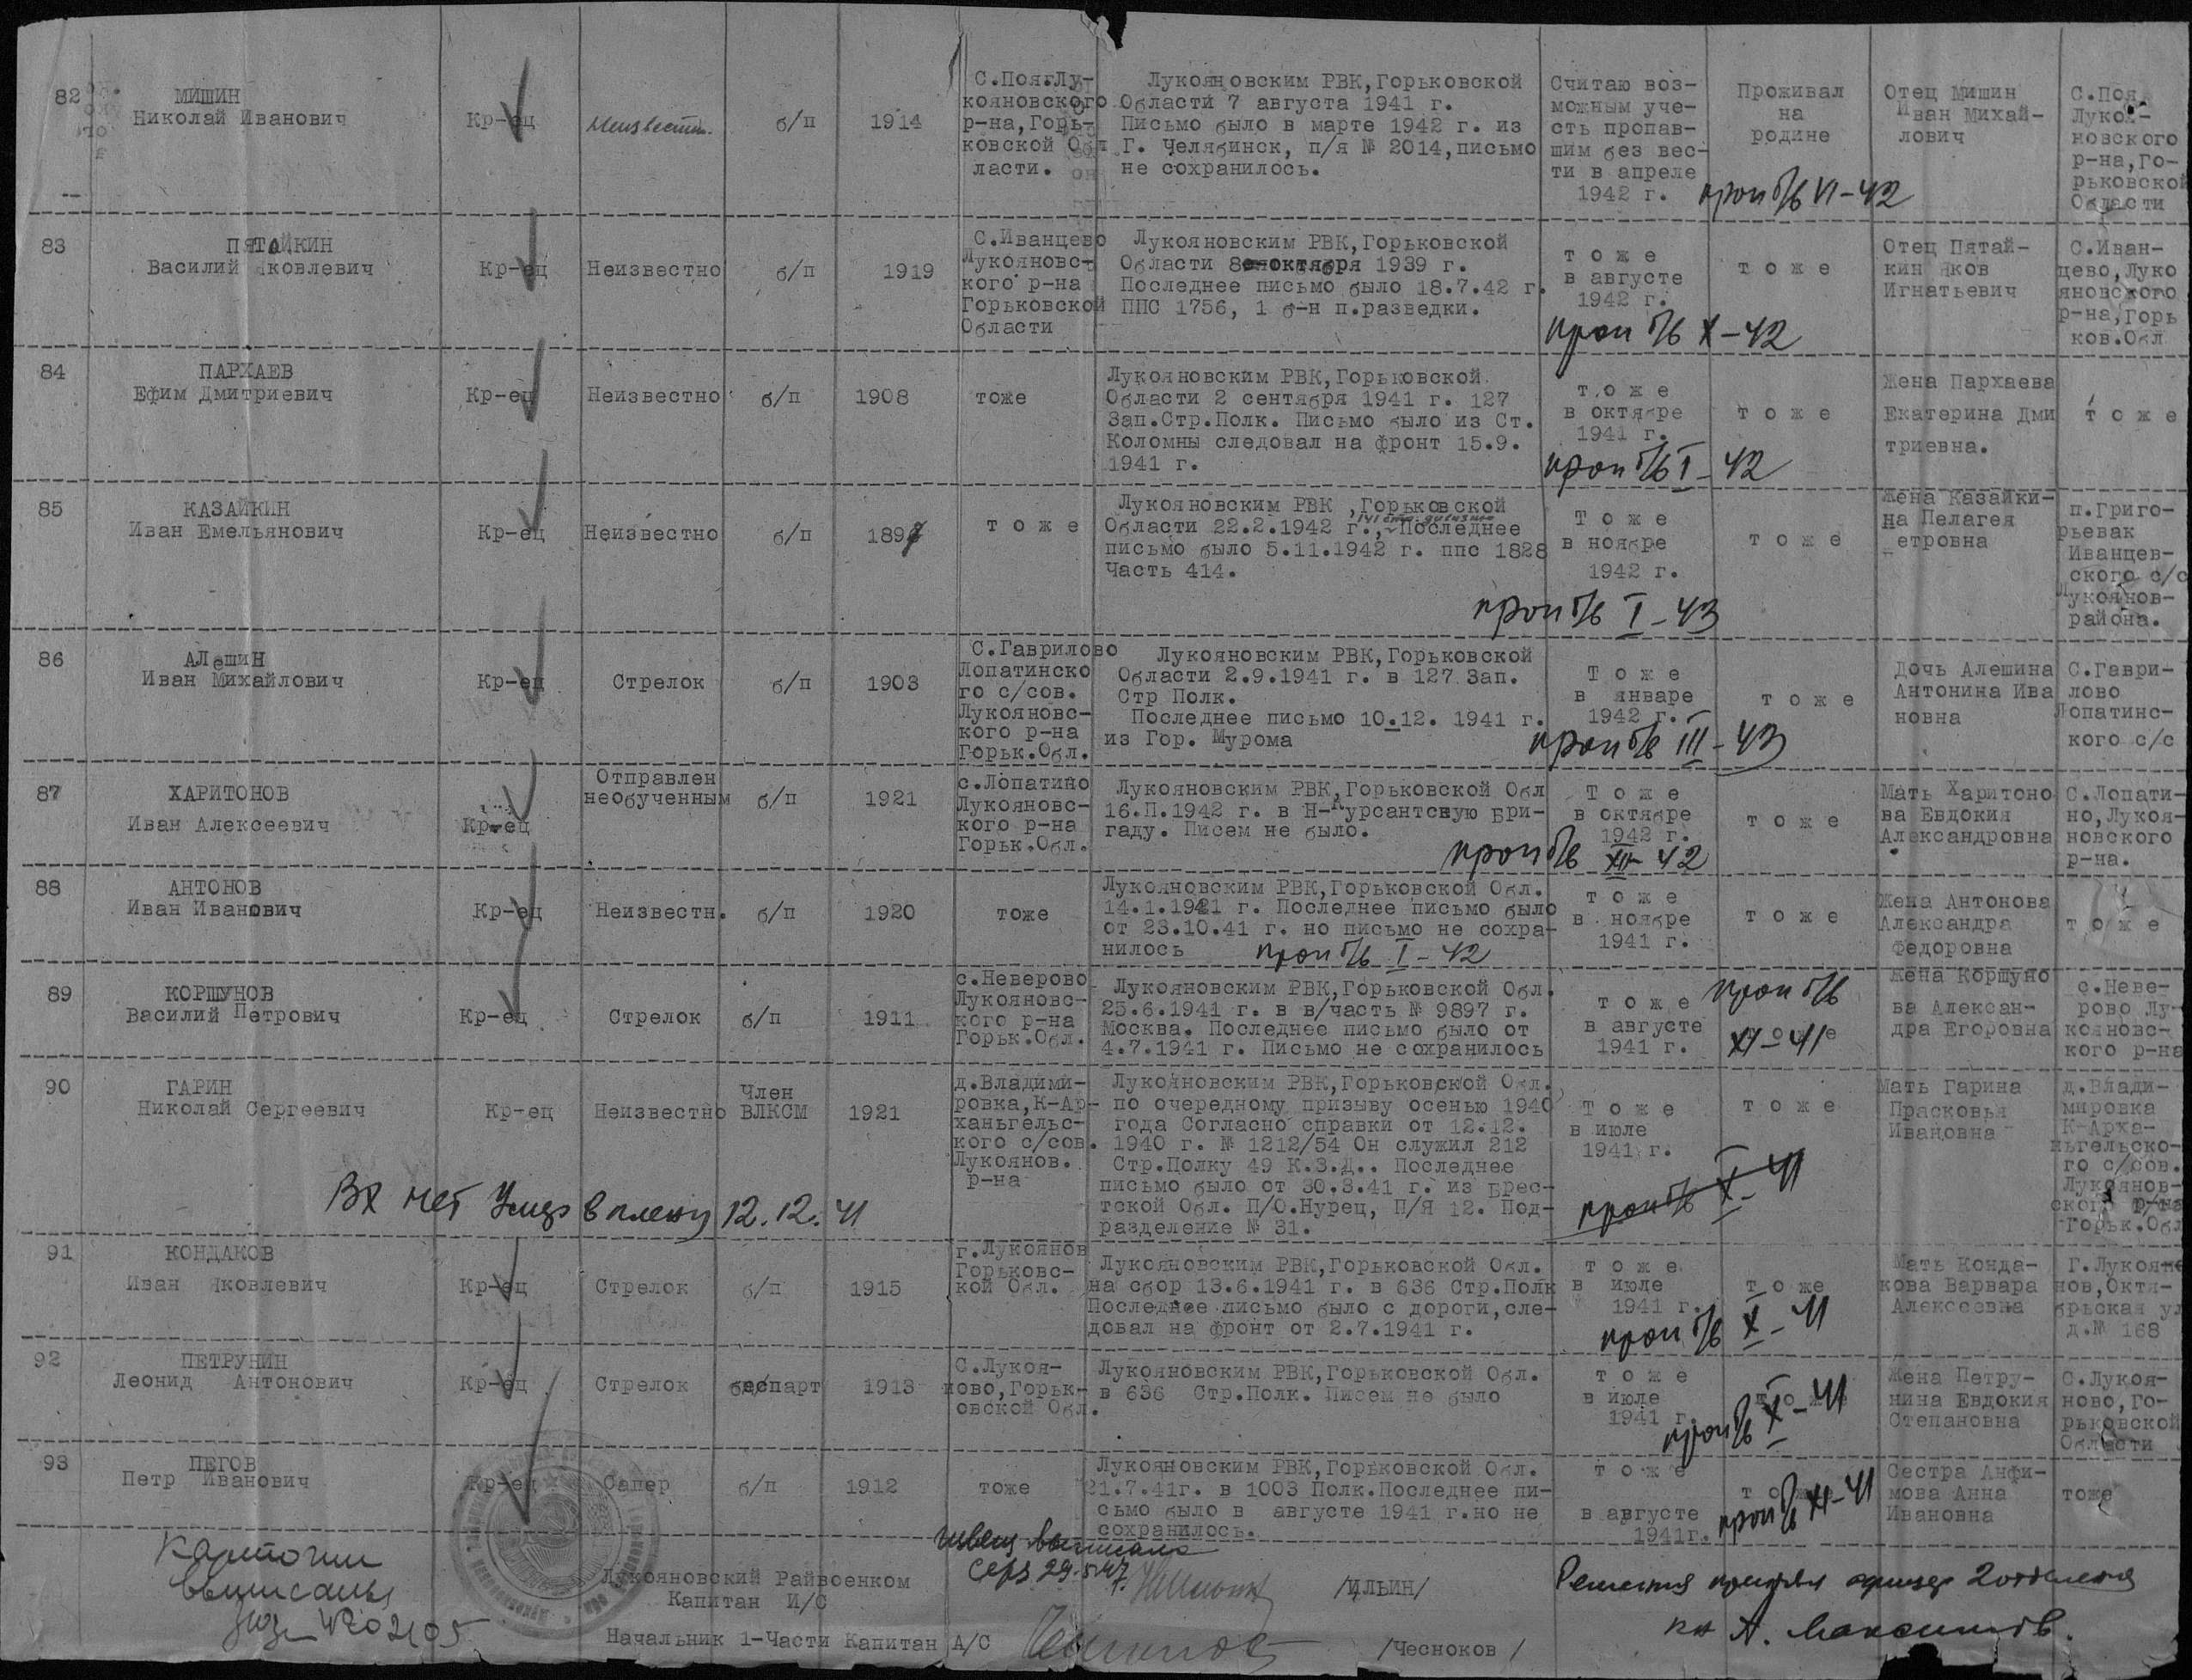 82
МИШИН
Николай Иванович
Кр-ец
Неизвестн.
б/п
1914
С.Поя Лу-
кояновского
р-на,Горь-
ковской Об
ласти.
Лукояновским РВК,Горьковской
Области 7 августа 1941 г.
Письмо было в марте 1942 г. из
Г. Челябинск, п/я № 2014,письмо
не сохранилось.
Считаю воз-
можным уче-
сть пропав-
шим без вес-
ти в апреле
1942 г.
Проживал
на
родине
проп б/в VI-42
Отец Мишин
Иван Михай-
лович
С.Поя
Лукоя-
новского
р-на,Го-
рьковской
Области
83
ПЯТАЙКИН
Василий Яковлевич
Кр-ец
Неизвестно
б/п
1919
С.Иванцево
Лукояновс-
кого р-на
Горьковской
Области
Лукояновским РВК,Горьковской
Области 8 октября 1939 г.
Последнее письмо было 18.7.42 г.
ППС 1756, 1 б-н п.разведки.
т о ж е
в августе
1942 г.
проп б/в X-42
т о ж е
Отец Пятай-
кин Яков
Игнатьевич
С.Иван-
цево,Луко
яновского
р-на,Горь
ков.Обл
84
ПАРХАЕВ
Ефим Дмитриевич
Кр-ец
Неизвестно
б/п
1908
тоже
Лукояновским РВК,Горьковской
Области 2 сентября 1941 г. 127
Зап.Стр.Полк. Письмо было из Ст.
Коломны следовал на фронт 15.9.
1941 г.
т о ж е
в октябре
1941 г.
проп б/в I-42
т о ж е
Жена Пархаева
Екатерина Дми
триевна.
т о ж е
85
КАЗАЙКИН
Иван Емельянович
Кр-ец
Неизвестно
б/п
1897
т о ж е
Лукояновским РВК ,Горьковской
Области 22.2.1942 г., Последнее
письмо было 5.11.1942 г. ппс 1828
Часть 414.
Т о ж е
в ноябре
1942 г.
проп б/в I-43
т о ж е
Жена Казайки-
на Пелагея
Петровна
п.Григо-
рьевак
Иванцев-
ского с/с
Лукоянов-
района.
86
АЛешиН
Иван Михайлович
Кр-ец
Стрелок
б/п
1903
С.Гаврилово
Лопатинско
го с/сов.
Лукояновс-
кого р-на
Горьк.Обл.
Лукояновским РВК,Горьковской
Области 2.9.1941 г. в 127 Зап.
Стр Полк.
Последнее письмо 10.12. 1941 г.
из Гор. Мурома
Т о ж е
в январе
1942 г.
проп б/в III-43
т о ж е
Дочь Алешина
Антонина Ива
новна
С.Гаври-
лово
Лопатинс-
кого с/с
87
ХАРИТОНОВ
Иван Алексеевич
Кр-ец
Отправлен
необученным
б/п
1921
с.Лопатино
Лукояновс-
кого р-на
Горьк.Обл.
Лукояновским РВК,Горьковской Обл
16.П.1942 г. в Н-Курсантскую Бри-
гаду. Писем не было.
Т о ж е
в октябре
1942 г.
проп б/в XII-42
т о ж е
Мать Харитоно
ва Евдокия
Александровна
С.Лопати-
но,Лукоя-
новского
р-на.
88
АНТОНОВ
Иван Иванович
Кр-ец
Неизвестн.
б/п
1920
тоже
Лукояновским РВК,Горьковской Обл.
14.1.1941 г. Последнее письмо было
от 23.10.41 г. но письмо не сохра-
нилось
проп б/в I-42
т о ж е
в ноябре
1941 г.
т о ж е
Жена Антонова
Александра
Федоровна
т о ж е
89
КОРШУНОВ
Василий Петрович
Кр-ец
Стрелок
б/п
1911
с.Неверово
Лукояновс-
кого р-на
Горьк.Обл.
Лукояновским РВК,Горьковской Обл.
25.6.1941 г. в в/часть № 9897 г.
Москва. Последнее письмо было от
4.7.1941 г. Письмо не сохранилось
т о ж е
в августе
1941 г.
проп б/в
XI-41
Жена Коршуно
ва Алексан-
дра Егоровна
с.Неве-
рово Лу-
кояновс-
кого р-на
90
ГАРИН
Николай Сергеевич
Кр-ец
Неизвестно
Член
ВЛКСМ
1921
д.Владими-
ровка,К-Ар-
ханьгельс-
кого с/сов.
Лукоянов.
р-на
Лукояновским РВК,Горьковской Обл.
по очередному призыву осенью 1940
года Согласно справки от 12.12.
1940 г. № 1212/54 Он служил 212
Стр.Полку 49 К.З.Д.. Последнее
письмо было от 30.3.41 г. из Брес-
тской Обл. П/О.Нурец, П/Я 12. Под-
разделение № 31.
Т о ж е
в июле
1941 г.
проп б/в X-41
т о ж е
Мать Гарина
Прасковья
Ивановна
д.Влади-
мировка
К-Арха-
ньгельско-
го с/сов.
Лукоянов-
ского р-на
Горьк.Обл
ВК нет Умер в плену 12.12.41
91
КОНДАКОВ
Иван Яковлевич
Кр-ец
Стрелок
б/п
1915
г.Лукоянов
Горьковс-
кой Обл.
Лукояновским РВК,Горьковской Обл.
на сбор 13.6.1941 г. в 636 Стр.Полк
Последнее письмо было с дороги,сле-
довал на фронт от 2.7.1941 г.
т о ж е
в июле
1941 г.
проп б/в X-41
т о ж е
Мать Конда-
кова Варвара
Алексеевна
Г.Лукоя
нов,Октя-
брьская ул
д.№ 168
92
ПЕТРУНИН
Леонид Антонович
Кр-ец
Стрелок
беспарт
1913
С.Лукоя-
ново,Горьк-
овской Обл.
Лукояновским РВК,Горьковской Обл.
в 636 Стр.Полк. Писем не было
т о ж е
в июле
1941 г.
проп б/в X-41
Жена Петру-
нина Евдокия
Степановна
С.Лукоя-
ново,Го-
рьковской
Области
93
ПЕГОВ
Петр Иванович
Кр-ец
Сапер
б/п
1912
тоже
Лукояновским РВК,Горьковской Обл.
21.7.41г. в 1003 Полк.Последнее пи-
сьмо было в августе 1941 г.но не
сохранилось.
т о ж е
в августе
1941г.
проп б/в XI-41
Сестра Анфи-
мова Анна
Ивановна
тоже
Карточки
выписаны
выписала
29.5.47
Лукояновский Райвоенком
Капитан И/С
/ИЛЬИН/
Начальник 1-Части Капитан А/С
/Чесноков /
Решения принял офицер 2 отделения
А. Максимов.